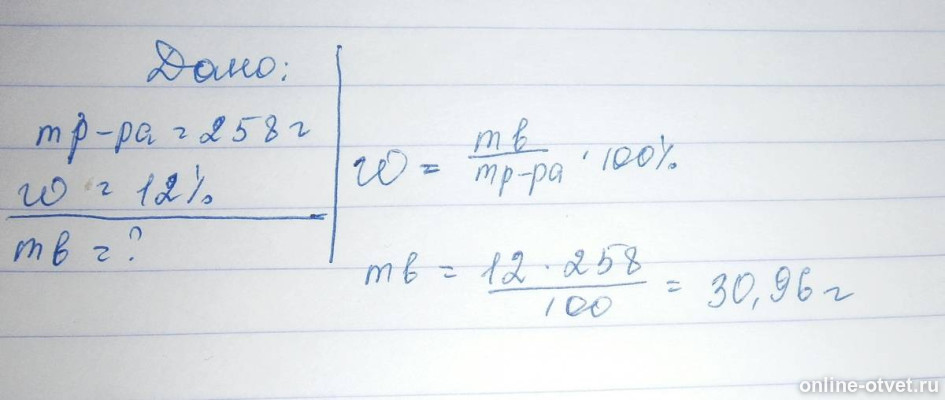 Дано:
mр-ра = 258 г
w = 12%
mв = ?
w = mв / mр-ра · 100%
mв = 12 · 258 / 100 = 30,96 г
online-otvet.ru